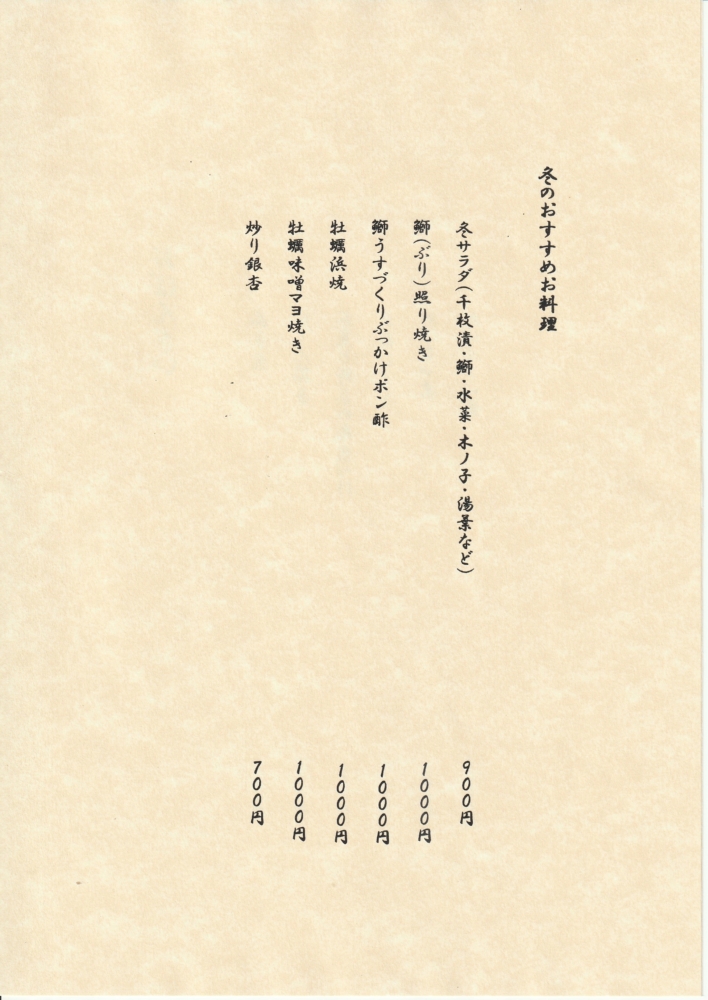 冬のおすすめお料理
冬サラダ(千枚漬・鰤・水菜・木ノ子・湯葉など) 900円
鰤(ぶり)照り焼き 1000円
鰤うすづくりぶっかけポン酢 1000円
牡蠣浜焼 1000円
牡蠣味噌マヨ焼き 1000円
炒り銀杏 700円